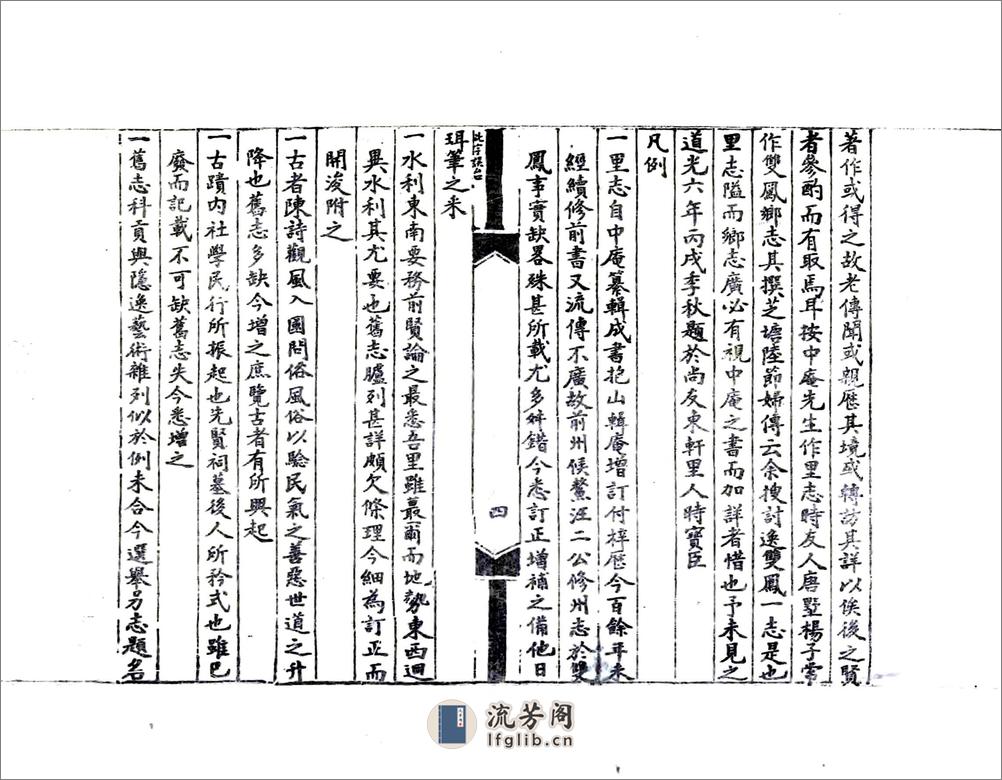 著作或得之故老傳聞或親歷其境或轉訪其詳以俟後之賢
者參酌而有取焉耳按中庵先生作里志時友人唐墅楊子常
作雙鳳鄉志其撰芝塘陸節婦傳云余搜討逸雙鳳一志是也
里志隘而鄉志廣必有視中庵之書而加詳者惜也予未見之
道光六年丙戌季秋題於尚友東軒里人時寶臣
凡例
一里志自中庵纂輯成書抱山輯庵增訂付梓歷今百餘年未
經續修前書又流傳不廣故前州候鰲汪二公修州志於雙
鳳事實缺畧殊甚所載尤多舛錯今悉訂正增補之備他日
四
珥筆之釆
一水利東南要務前賢論之最悉吾里雖蕞爾而地勢東西迴
異水利其尤要也舊志臚列甚詳頗欠條理今細為訂正而
開浚附之
一古者陳詩觀風入國問俗風俗以驗民氣之善惡世道之升
降也舊志多缺今增之庶覽古者有所興起
一古蹟內社學民行所振起也先賢祠墓後人所矜式也雖已
廢而記載不可缺舊志失今悉增之
一舊志科貢與隱逸藝術雜列似於例未合今選舉另志題名
流芳阁
lfglib.cn